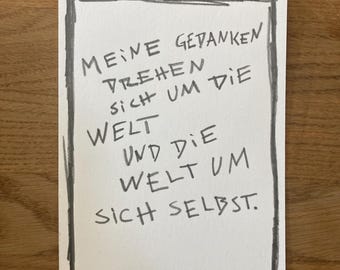 MEINE GEDANKEN
DREHEN
SICH UM DIE
WELT
UND DIE
WELT UM
SICH SELBST.